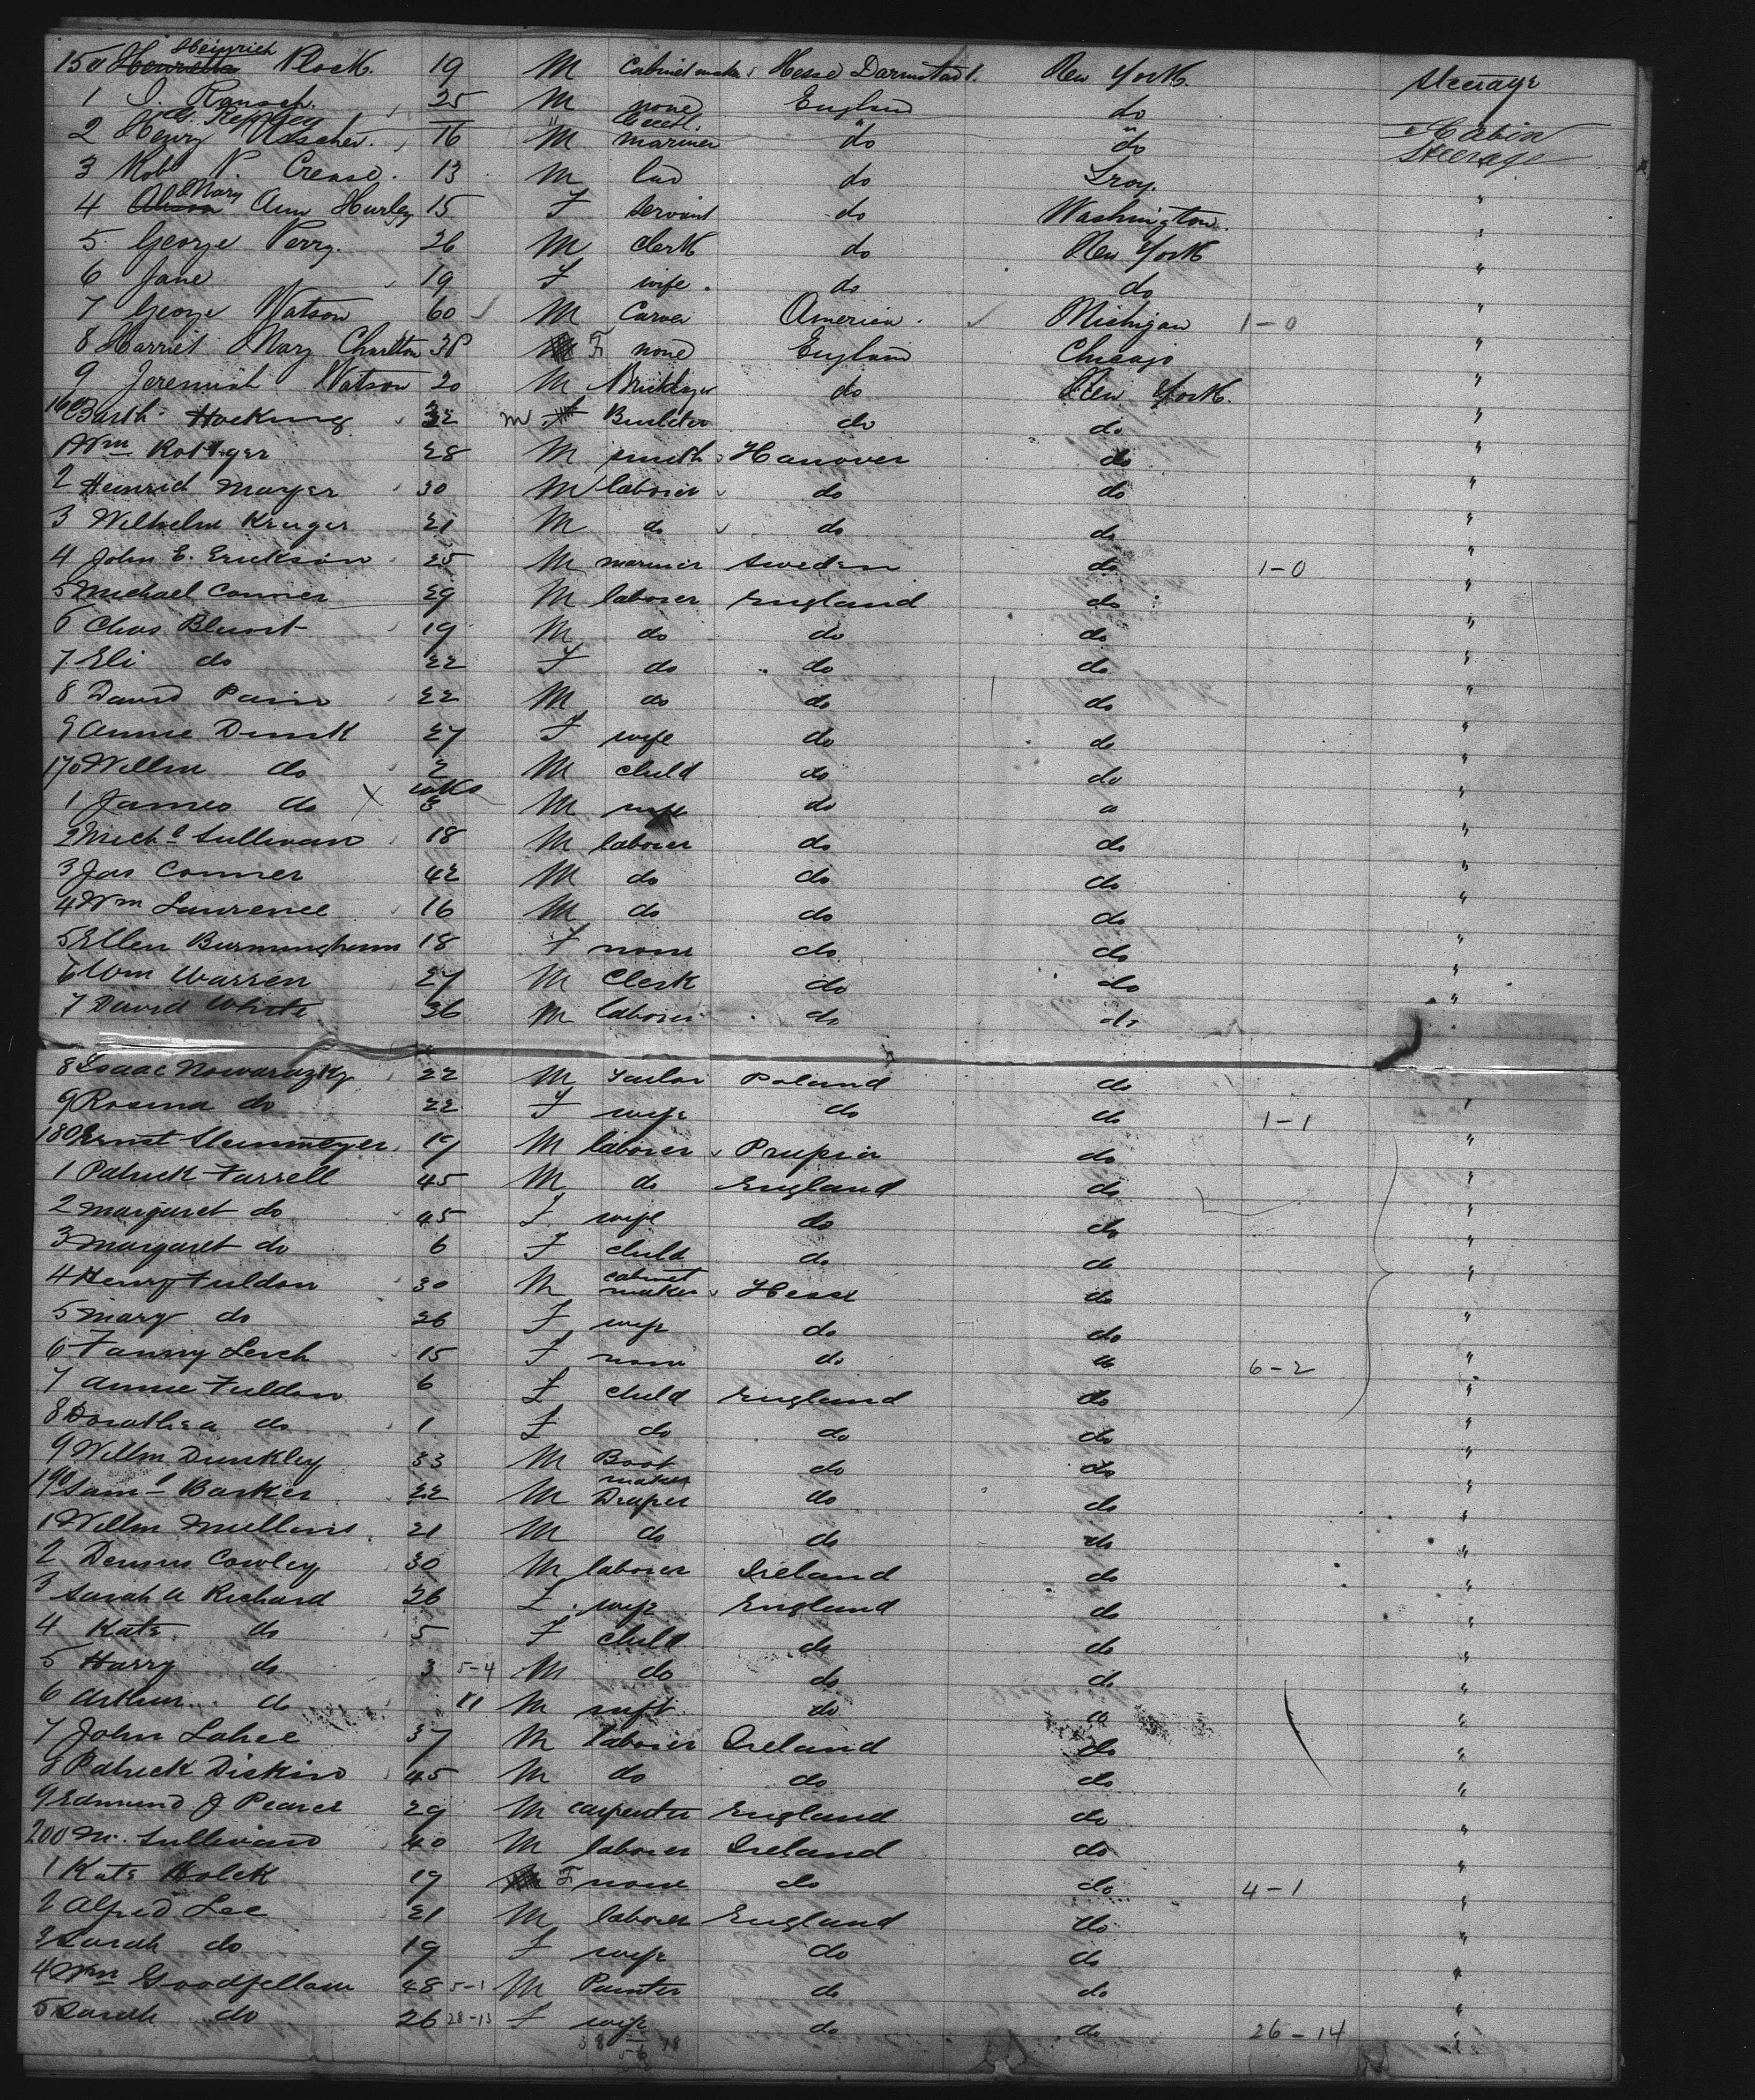 150 Henrietta Heinrich Plock. 19 M Cabinet maker Hesse Darmstadt. New York. Steerage
1 J. Rausch. 25 M none England do
" " " Cabin
2 Henry Ascher. 16 M mariner do do Steerage
3 Robt N. Crease. 13 M lad do Troy. "
4 Mary Ann Hurley 15 F Servant do Washington. "
5 George Perry. 26 M clerk do New York "
6 Jane 19 F wife. do do "
7 George Watson 60 M Carver America. Michigan 1-0 "
8 Harriet Mary Charlton 38 F none England Chicago "
9 Jeremiah Watson 20 M Bricklayer do New York. "
160 Barth. Hocking 32 M do do "
1 Wm Rottger 28 M smith Hanover do "
2 Heinrich Mayer 30 M laborer do do "
3 Wilhelm Kruger 21 M do do do "
4 John E. Erickson 25 M mariner Sweden do 1-0 "
5 Michael Conner 29 M laborer England do "
6 Chas Blunt 19 M do do do "
7 Eli do 22 F do do do "
8 David Pain 22 M do do do "
9 Annie Dunk 27 F wife do do "
170 Willm do 2 M child do do "
1 James do X wks 3 M inft do do "
2 Michl Sullivan 18 M laborer do do "
3 Jas Conner 42 M do do do "
4 Wm Lawrence 16 M do do do "
5 Ellen Burmingham 18 F none do do "
6 Wm Warren 27 M Clerk do do "
7 David White 36 M laborer do do "
8 Isaac Nowarazky 22 M Tailor Poland do
9 Rosina do 22 F wife do do 1-1 "
180 Ernst Steinmeyer 19 M laborer Prussia do "
1 Patrick Farrell 45 M do England do "
2 Margaret do 45 F wife do do "
3 Margaret do 6 F child do do "
4 Henry Fuldon 30 M cabinet maker Hesse do "
5 Mary do 26 F wife do do "
6 Fanny Lerch 15 F none do do 6-2 "
7 Annie Fuldon 6 F child England do "
8 Dorothea do 1 F do do do "
9 Willm Dunkley 33 M Boot maker do do "
190 Saml Barker 22 M Draper do do "
1 Willm Mullins 21 M do do do "
2 Dennis Cowley 30 M laborer Ireland do "
3 Sarah A Richard 26 F wife England do "
4 Kate do 5 F child do do "
5 Harry do 3 5-4 M do do do "
6 Arthur do 11 M inft do do "
7 John Lahee 37 M laborer Ireland do "
8 Patrick Diskin 45 M do do do "
9 Edmund J Pearce 29 M carpenter England do "
200 M. Sullivan 40 M laborer Ireland do "
1 Kate Holck 19 F none do do 4-1 "
2 Alfred Lee 21 M laborer England do "
3 Sarah do 19 F wife do do "
4 Wm Goodfellow 48 5-1 M Painter do do "
5 Sarah do 26 28-13 F wife do do 26-14 "
38 18
56